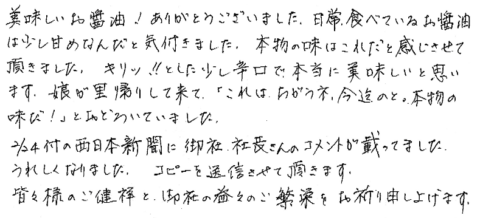 美味しいお醤油！ありがとうございました。日常、食べているお醤油
は少し甘めなんだと気付きました。本物の味はこれだと感じさせて
頂きました。キリッ!!とした少し辛口で本当に美味しいと思い
ます。娘が里帰りして来て、「これは、ちがうネ、今迄のと。本物の
味だ！」とおどろいていました。
2/24付の西日本新聞に御社、社長さんのコメントが載ってました。
うれしくなりました。コピーを送信させて頂きます。
皆々様のご健祥と、御社の益々のご繁栄をお祈り申し上げます。